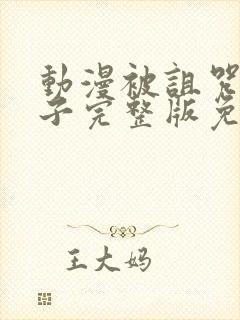 動漫被詛咒
子完整版免
王大妈